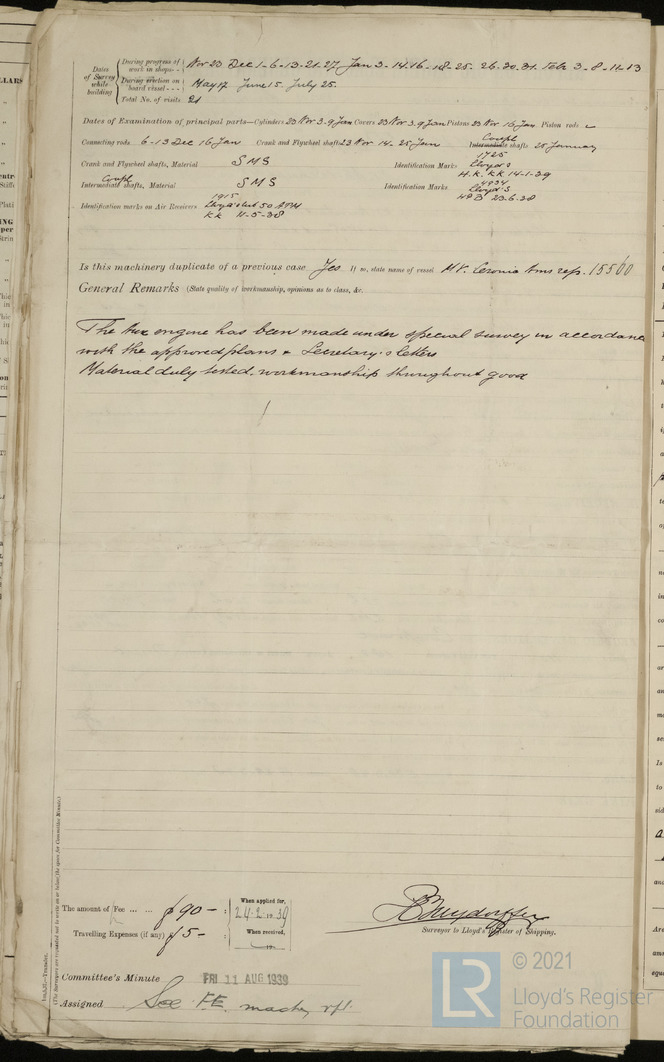 During progress of work in shops - - Nov 23 Dec 1-6-13-21-27 Jan 3-14-16-18-25-26-30-31 Feb 3-8-11-13
Dates of Survey while building
During erection on board vessel - - - May 17 June 15 July 25
Total No. of visits 21
Dates of Examination of principal parts—Cylinders 23 Nov 3.9 Jan Covers 23 Nov 3.9 Jan Pistons 23 Nov 16 Jan Piston rods
Connecting rods 6-13 Dec 16 Jan Crank and Flywheel shafts 23 Nov 14-25 Jan Coupl Intermediate shafts 25 January
Crank and Flywheel shafts, Material S M S Identification Marks 1725 Lloyd's H.K. KK 14-1-39
Coupl Intermediate shafts, Material S M S Identification Marks 4934 Lloyd's
Identification marks on Air Receivers 1915
KK 11-5-38
Is this machinery duplicate of a previous case Yes If so, state name of vessel MV. Ams rep. 15560
General Remarks (State quality of workmanship, opinions as to class, &c.
The aux engine has been made under special survey in accordance
with the approved plans & Secretary's letters
Material duly tested. workmanship throughout good
The amount of Fee ... ... £ 90 - :
When applied for, 24.2.1939
Travelling Expenses (if any) £ 15 - :
When received,
Surveyor to Lloyd's Register of Shipping.
Committee's Minute FRI 11 AUG 1939
Assigned See F.E. machy rpt.
(The Surveyors are requested not to write on or below the space for Committee Minute.)
© 2021
LR
Lloyd's Register
Foundation